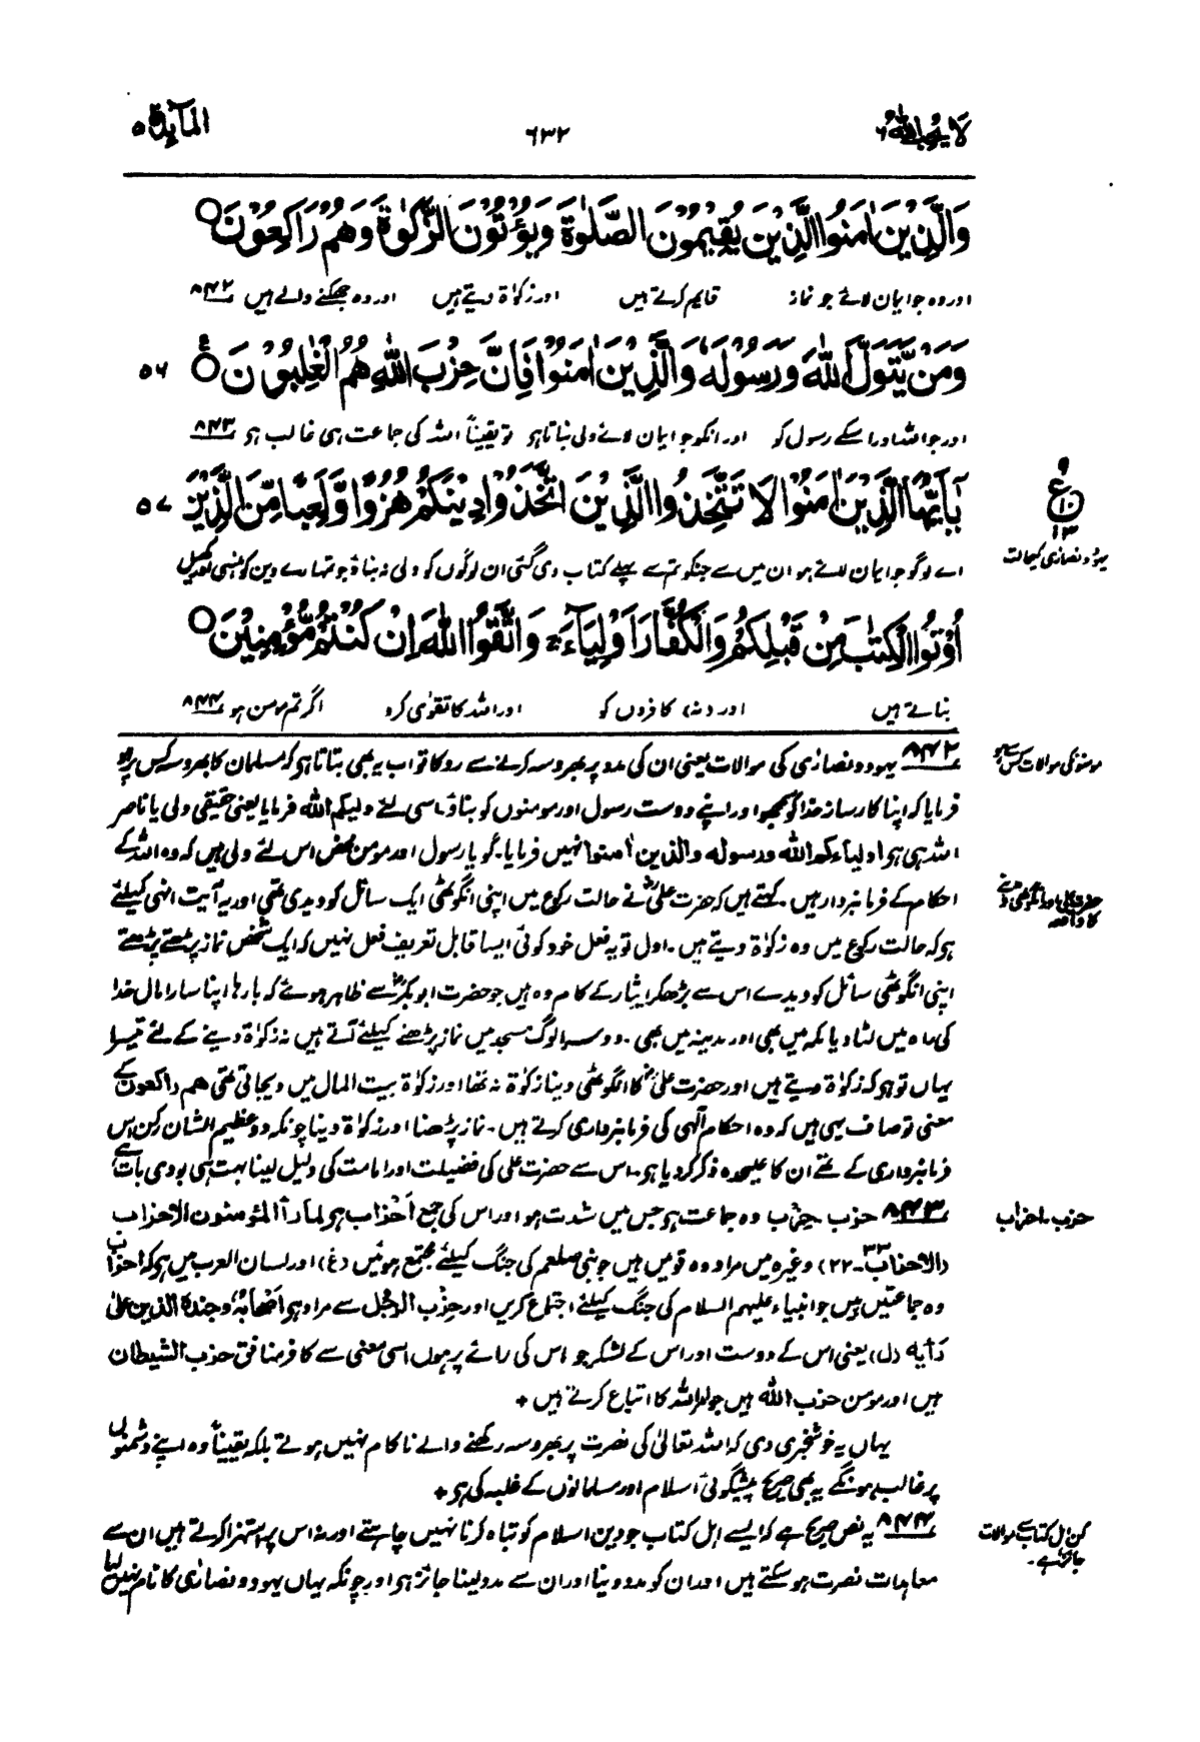 لا یحب اللہ ۶
۶۳۲
المآئدۃ ۵
وَالَّذِیْنَ اٰمَنُوا الَّذِیْنَ یُقِیْمُوْنَ الصَّلٰوۃَ وَیُؤْتُوْنَ الزَّکٰوۃَ وَھُمْ رٰکِعُوْنَ ○
اور وہ جو ایمان لائے جو نماز قائم کرتے ہیں اور زکوٰۃ دیتے ہیں اور وہ جھکنے والے ہیں ۸۴۲
وَمَنْ یَّتَوَلَّ اللہَ وَرَسُوْلَہٗ وَالَّذِیْنَ اٰمَنُوْا فَاِنَّ حِزْبَ اللہِ ھُمُ الْغٰلِبُوْنَ ○ ۵۶
اور جو اللہ اور اسکے رسول کو اور انکو جو ایمان لائے ولی بناتا ہو تو یقیناً اللہ کی جماعت ہی غالب ہو ۸۴۳
یٰٓاَیُّھَا الَّذِیْنَ اٰمَنُوْا لَا تَتَّخِذُوا الَّذِیْنَ اتَّخَذُوْا دِیْنَکُمْ ھُزُوًا وَّلَعِبًا مِّنَ الَّذِیْنَ ۵۷
ع ۱۰ ۱۲
یہود و نصاریٰ کی حالت
اے لوگو جو ایمان لائے ہو ان میں سے جنکو تم سے پہلے کتاب دی گئی ان لوگوں کو ولی نہ بناؤ جو تمہارے دین کو ہنسی اور کھیل
اُوْتُوا الْکِتٰبَ مِنْ قَبْلِکُمْ وَالْکُفَّارَ اَوْلِیَآءَ وَاتَّقُوا اللہَ اِنْ کُنْتُمْ مُّؤْمِنِیْنَ ○
بناتے ہیں اور (نہ) کافروں کو اور اللہ کا تقویٰ کرو اگر تم مومن ہو ۸۴۴
۸۴۲ یہود و نصاریٰ کی موالات یعنی ان کی مدد پر بھروسہ کرنے سے روکا تو اب یہ بھی بتاتا ہو کہ مسلمان کا بھروسہ کس پر ہو
مومنو کی موالات کس سے ہو
فرمایا کہ اپنا کارساز خدا کو سمجھو اور اپنے دوست رسول اور مومنوں کو بناؤ۔ اسی لئے ولیکم اللہ فرمایا یعنی حقیقی ولی یا ناصر
اللہ ہی ہو اولیاءکم اللہ ورسولہ والذین اٰمنوا نہیں فرمایا۔ گویا رسول اور مومن محض اس لئے ولی ہیں کہ وہ اللہ کے
احکام کے فرمانبردار ہیں۔ کہتے ہیں کہ حضرت علیؓ نے حالت رکوع میں اپنی انگوٹھی ایک سائل کو دیدی تھی اور یہ آیت انہی کیلئے
حضرت علی اور انگوٹھی دینے کا واقعہ
ہو کہ حالت رکوع میں وہ زکوٰۃ دیتے ہیں۔ اول تو یہ فعل خود کوئی ایسا قابل تعریف فعل نہیں کہ ایک شخص نماز پڑھتے پڑھتے
اپنی انگوٹھی سائل کو دیدے اس سے بڑھکر ایثار کے کام وہ ہیں جو حضرت ابوبکرؓ سے ظاہر ہوئے کہ بارہا اپنا سارا مال خدا
کی راہ میں لٹا دیا مکہ میں بھی اور مدینہ میں بھی۔ دوسرا لوگ مسجد میں نماز پڑھنے کیلئے آتے ہیں نہ زکوٰۃ دینے کے لئے تیسرا
یہاں تو ہو کہ زکوٰۃ دیتے ہیں اور حضرت علیؓ کا انگوٹھی دینا زکوٰۃ نہ تھا اور زکوٰۃ بیت المال میں دیجاتی تھی ھم راکعون کے
معنی تو صاف یہی ہیں کہ وہ احکام الٰہی کی فرمانبرداری کرتے ہیں۔ نماز پڑھنا اور زکوٰۃ دینا چونکہ دو عظیم الشان رکن ہیں
فرمانبرداری کے لئے ان کا علیحدہ ذکر کر دیا ہو۔ اس سے حضرت علی کی فضیلت اور امامت کی دلیل لینا بہت ہی بودی بات ہے
۸۴۳ حزب۔ حِزْب وہ جماعت ہو جس میں شدت ہو اور اس کی جمع اَحْزاب ہو لما رأا المؤمنون الاحزاب
حزب۔ احزاب
(الاحزاب ۳۳۔۲۲) وغیرہ میں مراد وہ قومیں ہیں جو نبی صلعم کی جنگ کیلئے مجتمع ہوئیں (غ) اور لسان العرب میں ہو کہ احزاب
وہ جماعتیں ہیں جو انبیاء علیہم السلام کی جنگ کیلئے اجتماع کریں اور حِزْبُ الرجُل سے مراد ہو اَصْحَابُہٗ وجندہ الذین علیٰ
رَأیِہٖ (ل) یعنی اس کے دوست اور اس کے لشکر جو اس کی رائے پر ہوں اسی معنی سے کافر منافق حزب الشیطان
ہیں اور مومن حزب اللہ ہیں جو امر اللہ کا اتباع کرتے ہیں +
یہاں یہ خوشخبری دی کہ اللہ تعالیٰ کی نصرت پر بھروسہ رکھنے والے ناکام نہیں ہوتے بلکہ یقیناً وہ اپنے دشمنوں
پر غالب ہونگے یہ بھی صریح پیشگوئی اسلام اور مسلمانوں کے غلبہ کی ہو +
۸۴۴ یہ نص صریح ہے کہ ایسے اہل کتاب جو دین اسلام کو تباہ کرنا نہیں چاہتے اور نہ اس پر استہزا کرتے ہیں ان سے
کن اہل کتاب سے موالات جائز ہے۔
معاہدات نصرت ہو سکتے ہیں اور ان کو مدد دینا اور ان سے مدد لینا جائز ہو اور چونکہ یہاں یہود و نصاریٰ کا نام نہیں لیا